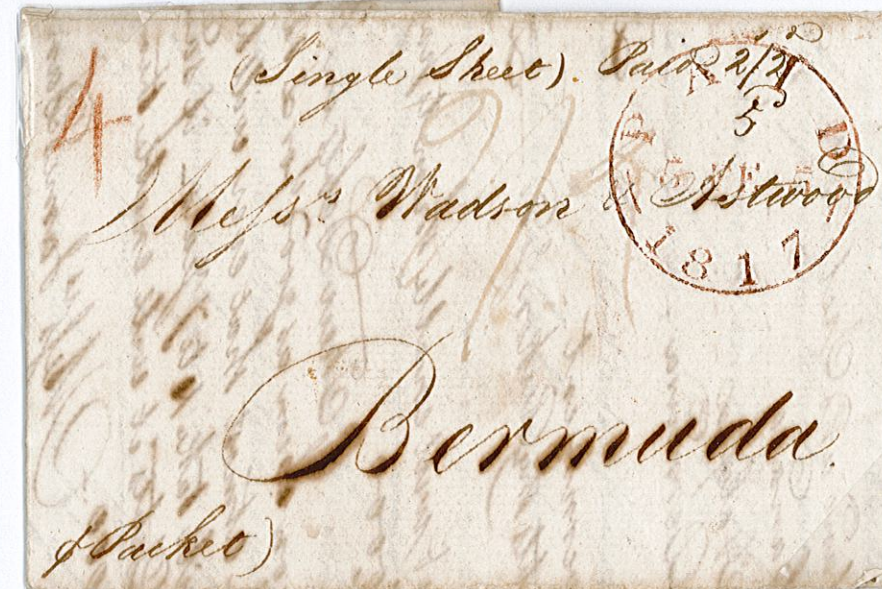 4
(Single Sheet). Paid 2/2
5
PAID
1817
Messrs Wadson & Astwood
Bermuda.
Packet)